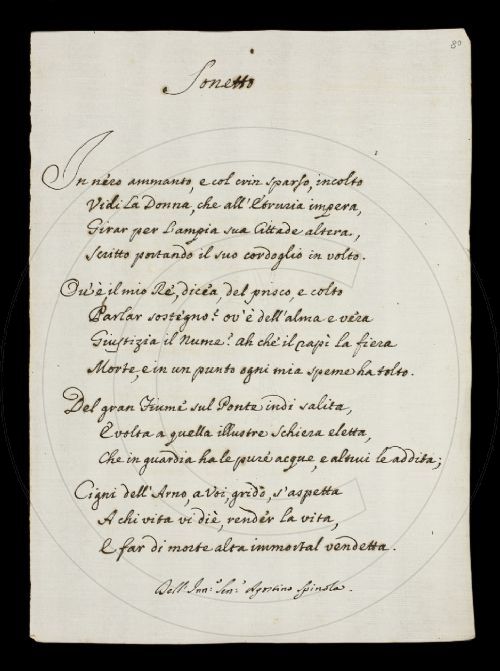 80
Sonetto
In nero ammanto, e col crin sparso, incolto
Vidi la Donna, che all'Etruria impera,
Girar per l'ampia sua Cittade altera,
Scritto portando il suo cordoglio in volto.
Ov'è il mio Rè, dicea, del prisco, e colto
Parlar sostegno? ov'è dell'alma e vera
Giustizia il Nume? ah che il rapì la fiera
Morte, e in un punto ogni mia speme ha tolto.
Del gran Fiume sul Ponte indi salita,
E volta a quella illustre schiera eletta,
Che in guardia ha le pure acque, e altrui le addita;
Cigni dell'Arno, a voi, gridò, s'aspetta
A chi vita vi diè, render la vita,
E far di morte alta immortal vendetta.
Dell' Agostino Spinola.